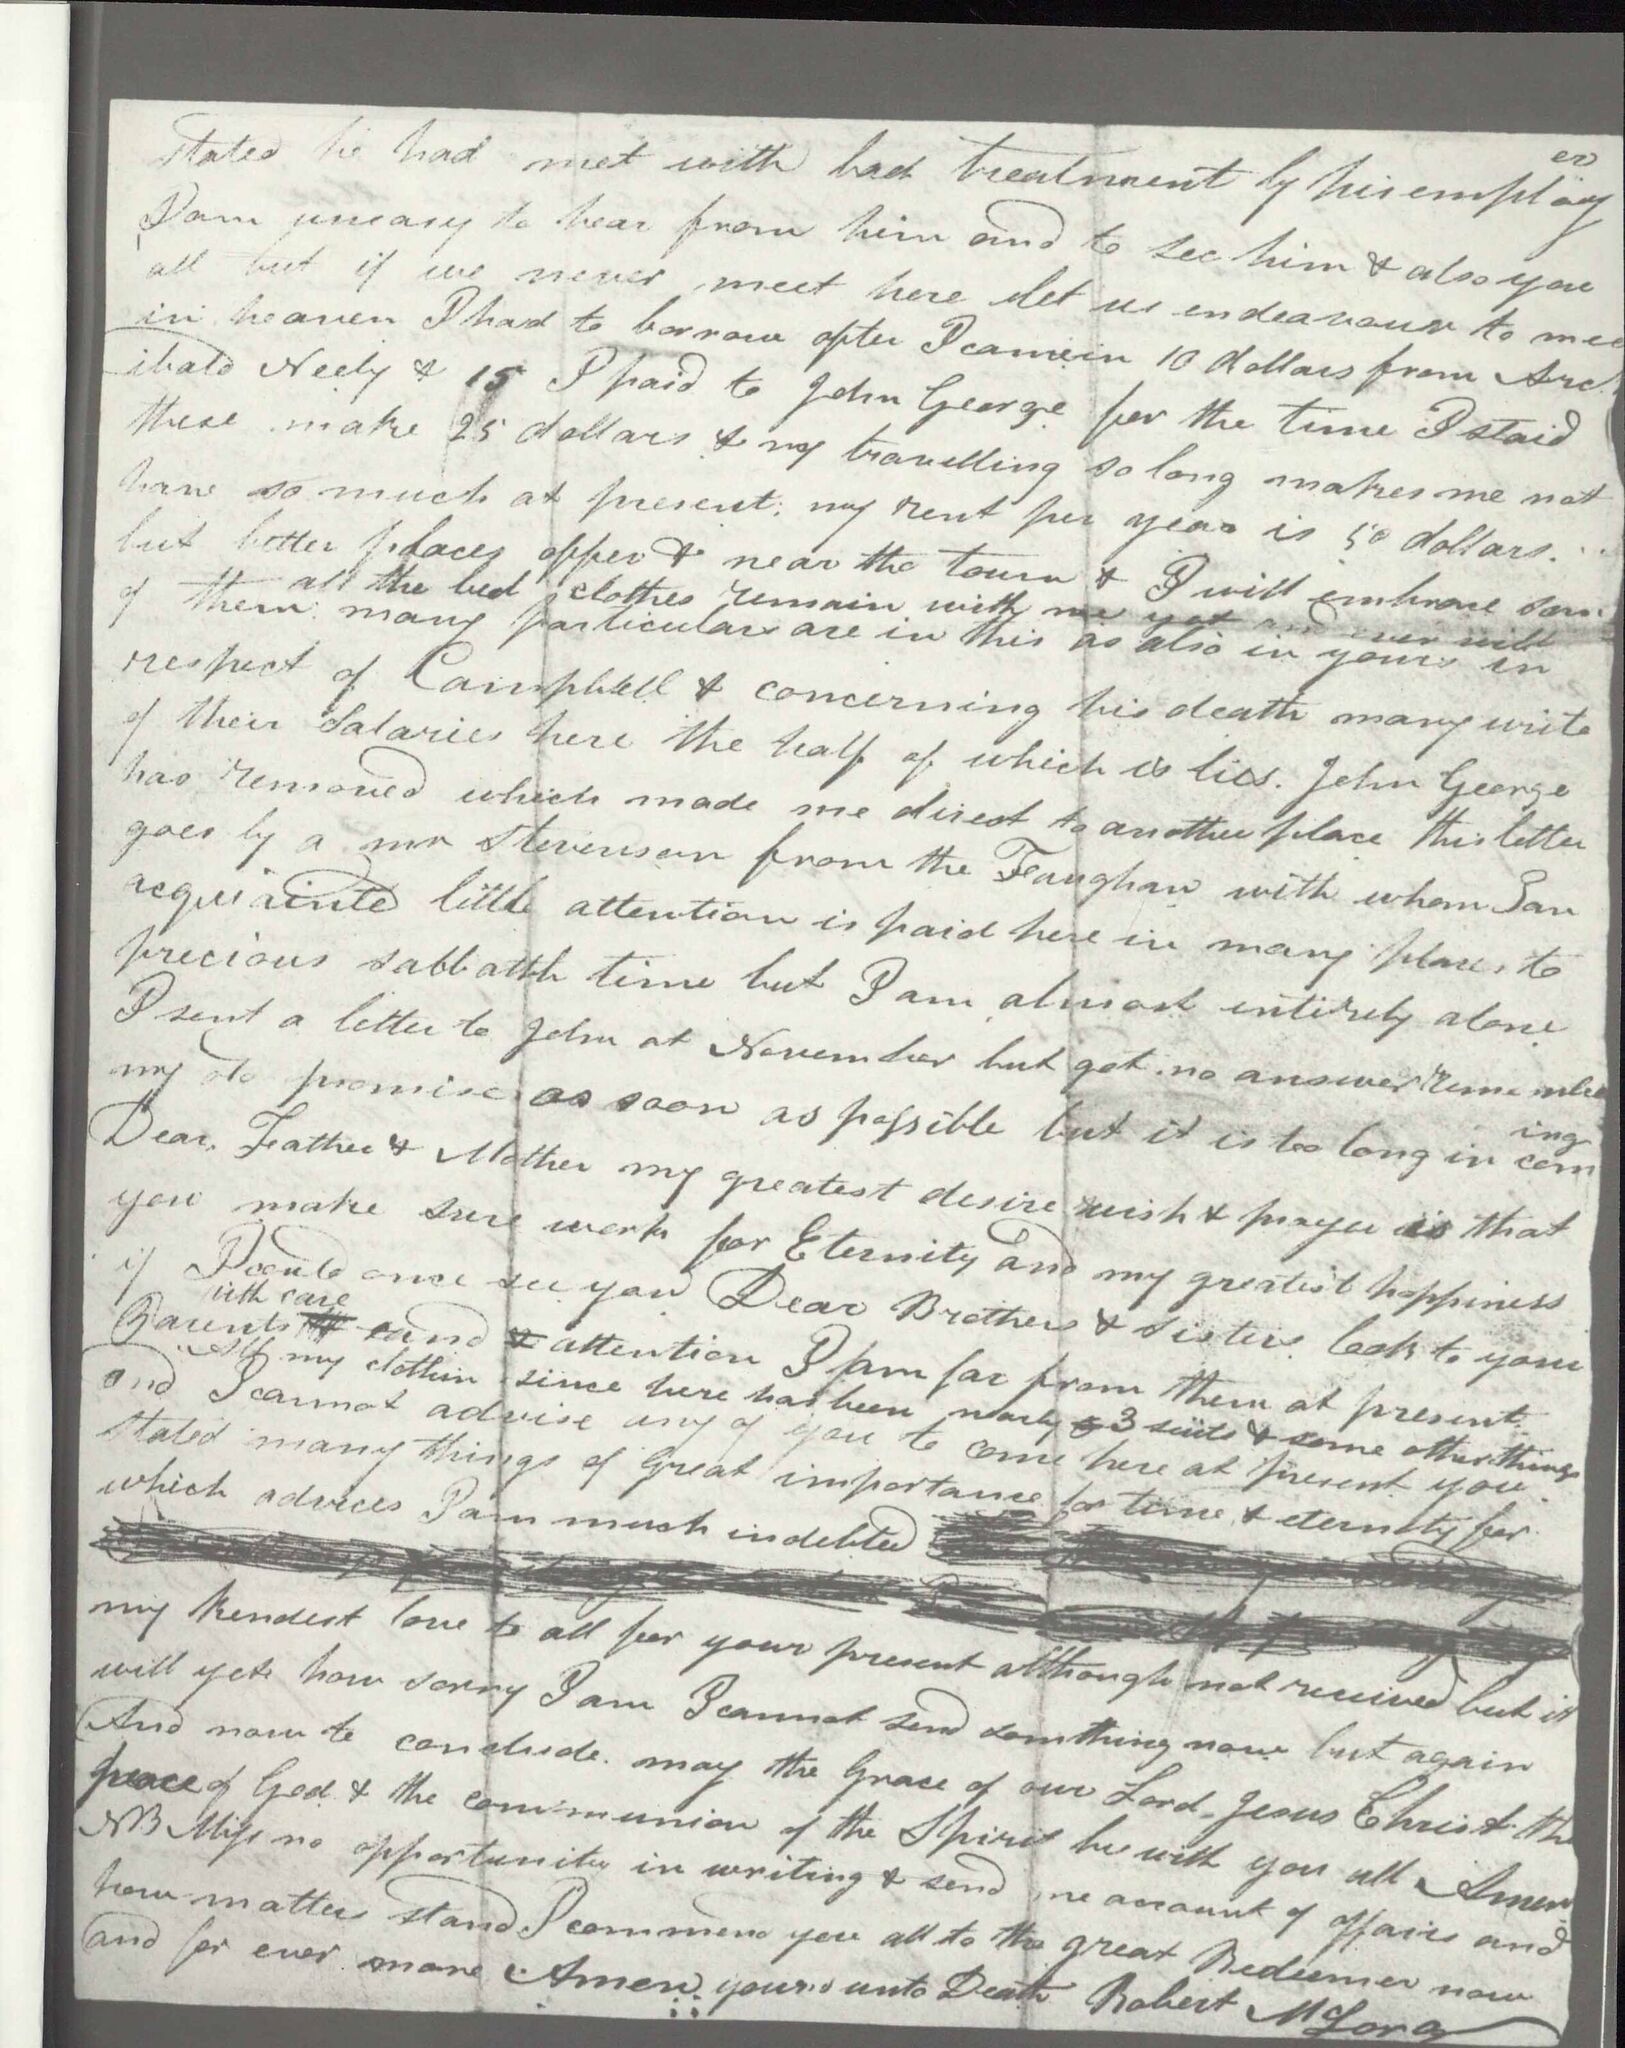 stated he had met with bad treatment by his employ
er
I am uneasy to hear from him and to see him & also you
all but if we never meet here let us endeavour to mee
in heaven I had to borrow after I came in 10 dollars from Arch
ibald Neely & 15 I paid to John George for the time I staid
these make 25 dollars & my travelling so long makes me not
have so much at present. my rent per year is 50 dollars.
but better places offer & near the town & I will embrace som
all the bed clothes remain with me yet and ever will
of them many particulars are in this as also in yours in
respect of Campbell & concerning his death many write
of their Salaries here the half of which is lies. John George
has removed which made me direct to another place this letter
goes by a mr Stevenson from the Faughan with whom I am
acquainted little attention is paid here in many places to
precious sabbath time but I am almost entirely alone
I sent a letter to John at November but got no answer remember
my old promise as soon as possible but it is too long in com
ing
Dear Father & Mother my greatest desire wish & prayer is that
you make sure work for Eternity and my greatest happiness
if I could once see you Dear Brothers & Sisters look to your
with care
Parents and & attention I am far from them at present.
All my clothin since here has been nearly 3 suits & some other things
and I cannot advise any of you to come here at present you
stated many things of Great importance for time & eternity for
which advices I am much indebted
my kendest love to all for your present although not received but it
will yet how sorry I am I cannot send somthing now but again
And now to conclude may the Grace of our Lord Jesus Christ the
peace of God & the communion of the Spirit be with you all Amen
NB Miss no opportunity in writing & send me account of affairs and
how matters stand I commend you all to the great Redeemer now
and for ever more Amen. yours unto Death Robert